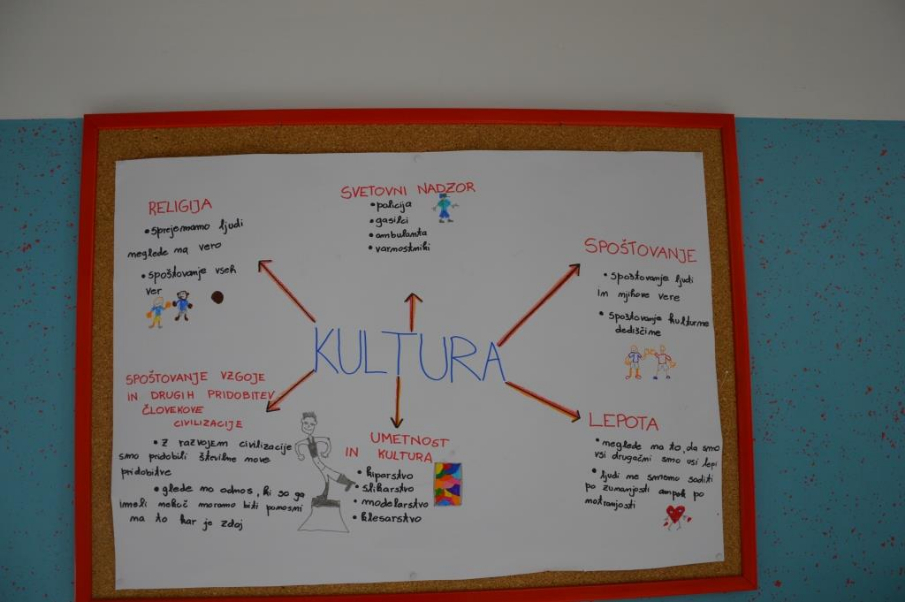 RELIGIJA
• sprejemamo ljudi
neglede na vero
• spoštovanje vseh
ver
SVETOVNI NADZOR
• policija
• gasilci
• ambulanta
• varnostniki
SPOŠTOVANJE
• spoštovanje ljudi
in njihove vere
• spoštovanje kulturne
dediščine
KULTURA
SPOŠTOVANJE VZGOJE
IN DRUGIH PRIDOBITEV
ČLOVEKOVE
CIVILIZACIJE
• Z razvojem civilizacije
smo pridobili številne nove
pridobitve
• glede na odnos, ki so ga
imeli nekoč moramo biti ponosni
na to kar je zdaj
UMETNOST
IN KULTURA
• kiparstvo
• slikarstvo
• modelarstvo
• klesarstvo
LEPOTA
• neglede na to, da smo
vsi drugačni smo vsi lepi
• ljudi ne smemo soditi
po zunanjosti ampak po
notranjosti